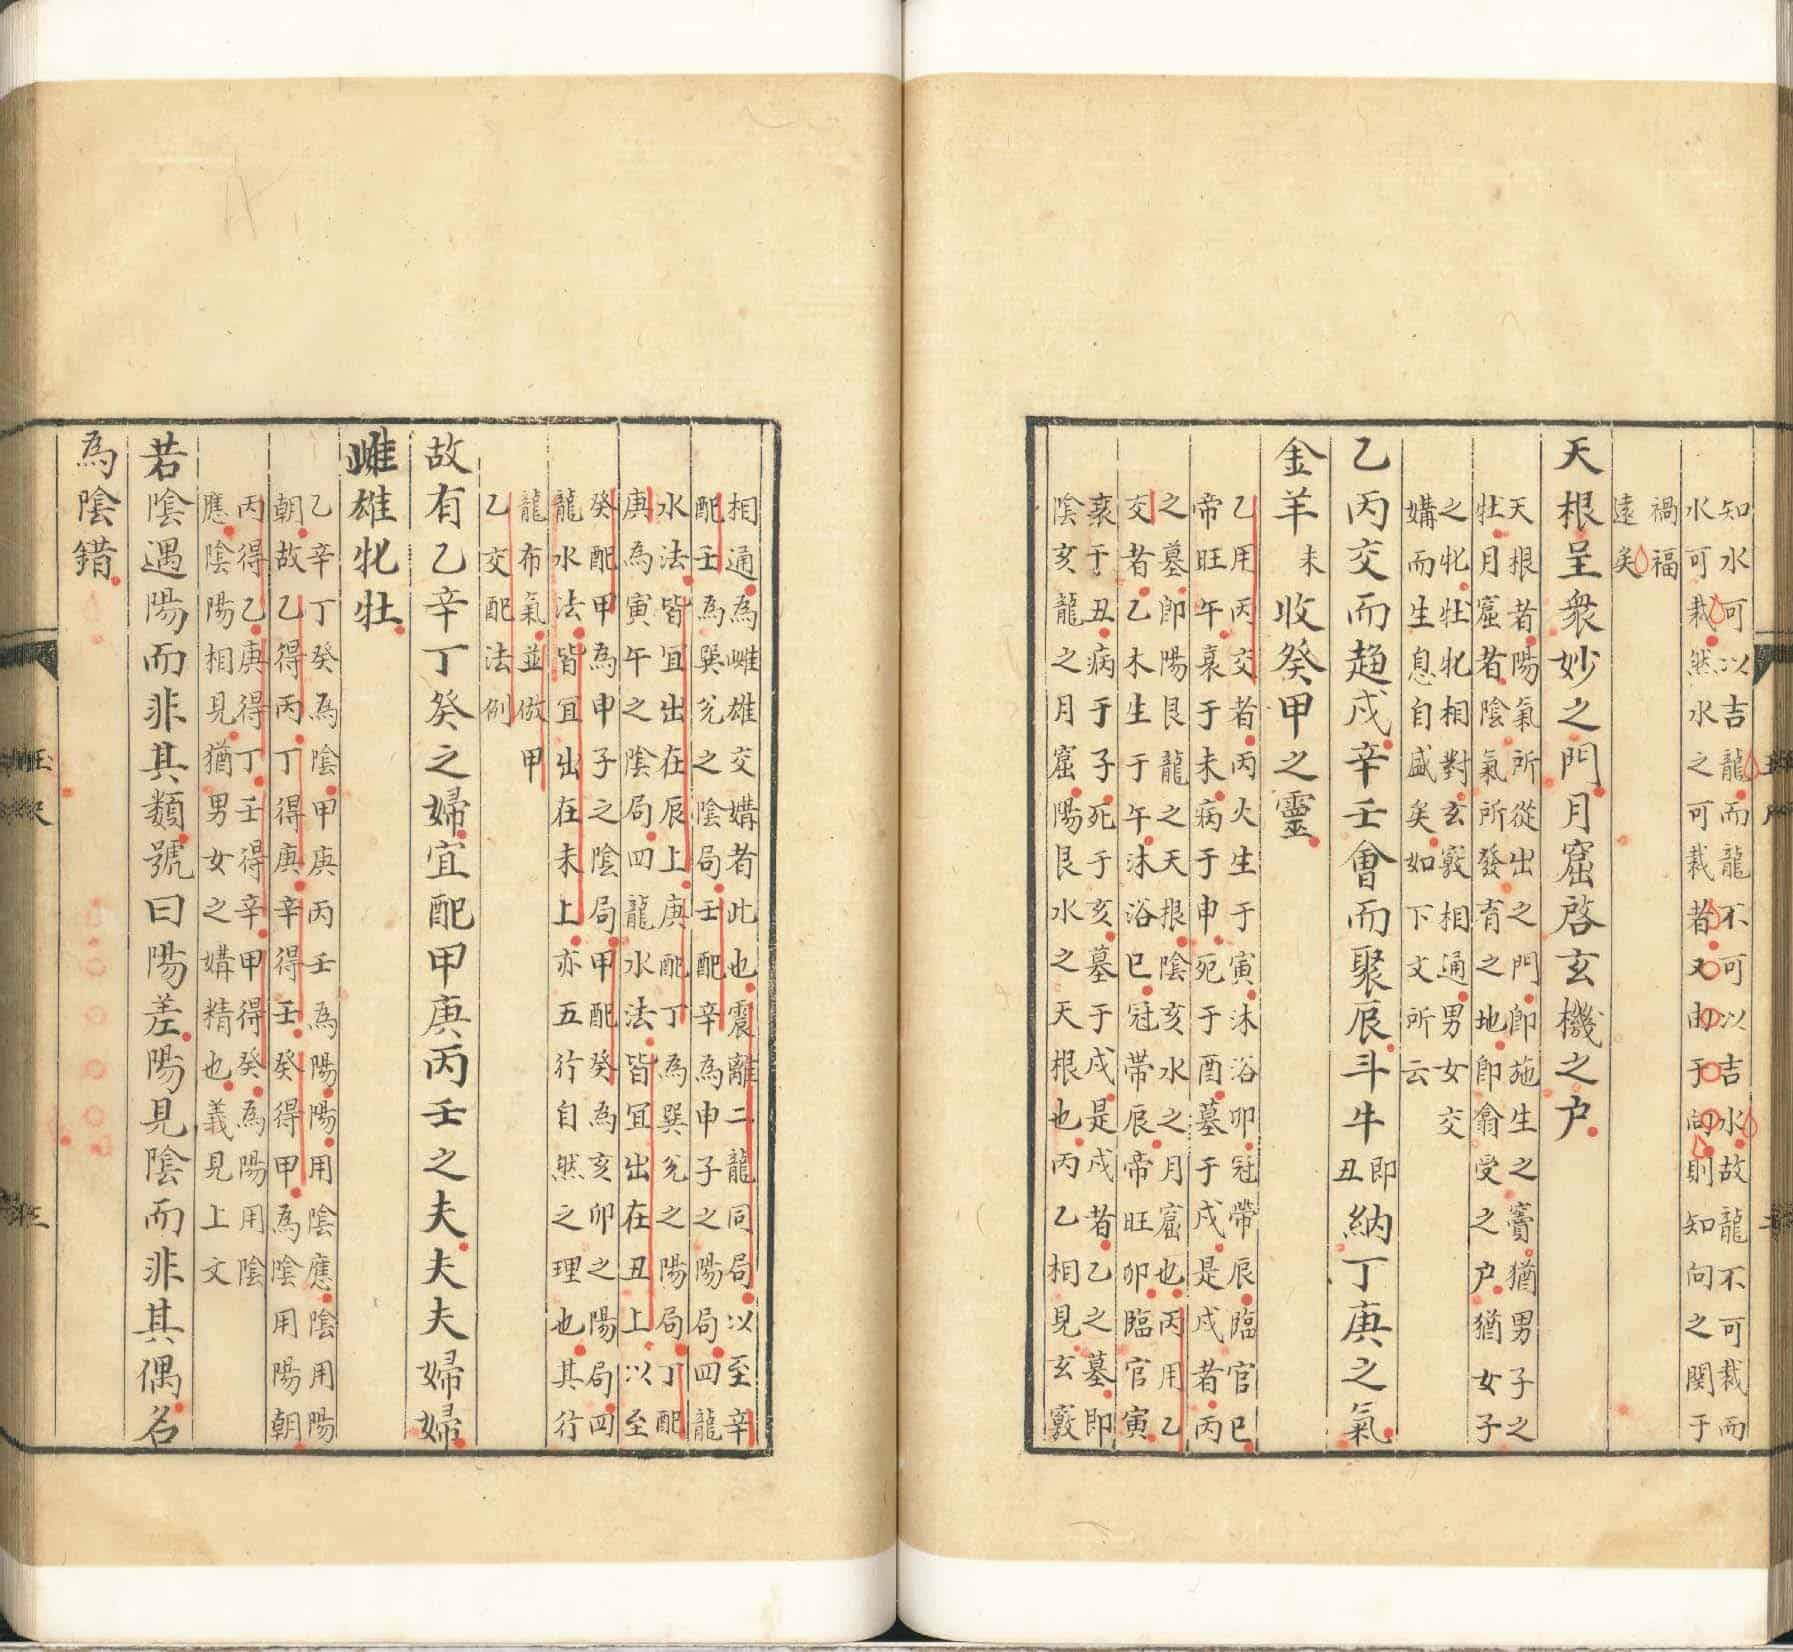 知水可以吉龍而龍不可以吉水故龍不可裁而
水可裁然水之可裁者又由于向則知向之関于
禍福
遠矣
天根呈衆妙之門月窟啓玄機之户
天根者陽氣所從出之門即施生之竇猶男子之
牡月窟者陰氣所發育之地即翕受之户猶女子
之牝牡牝相對玄竅相通男女交
媾而生息自盛矣如下文所云
乙丙交而趋戌辛壬會而聚辰斗牛即丑納丁庚之氣
金羊未收癸甲之靈
乙用丙交者丙火生于寅沐浴卯冠帶辰臨官巳
帝旺午衰于未病于申死于酉墓于戌是戌者丙
之墓即陽艮龍之天根陰亥水之月窟也丙用乙
交者乙木生于午沐浴巳冠帶辰帝旺卯臨官寅
衰于丑病于子死于亥墓于戌是戌者乙之墓即
陰亥龍之月窟陽艮水之天根也丙乙相見玄竅
相通為雌雄交媾者此也震離二龍同局以至辛
配壬為巽兊之陰局壬配辛為申子之陽局四龍
水法皆宜出在辰上庚配丁為巽兊之陽局丁配
庚為寅午之陰局四龍水法皆宜出在丑上以至
癸配甲為申子之陰局甲配癸為亥卯之陽局四
龍水法皆宜出在未上亦五行自然之理也其行
龍布氣並倣甲
乙交配法例
故有乙辛丁癸之婦宜配甲庚丙壬之夫夫夫婦婦
雌雄牝牡
乙辛丁癸為陰甲庚丙壬為陽陽用陰應陰用陽
朝故乙得丙丁得庚辛得壬癸得甲為陰用陽朝
丙得乙庚得丁壬得辛甲得癸為陽用陰
應陰陽相見猶男女之媾精也義見上文
若陰遇陽而非其類號曰陽差陽見陰而非其偶名
為陰錯